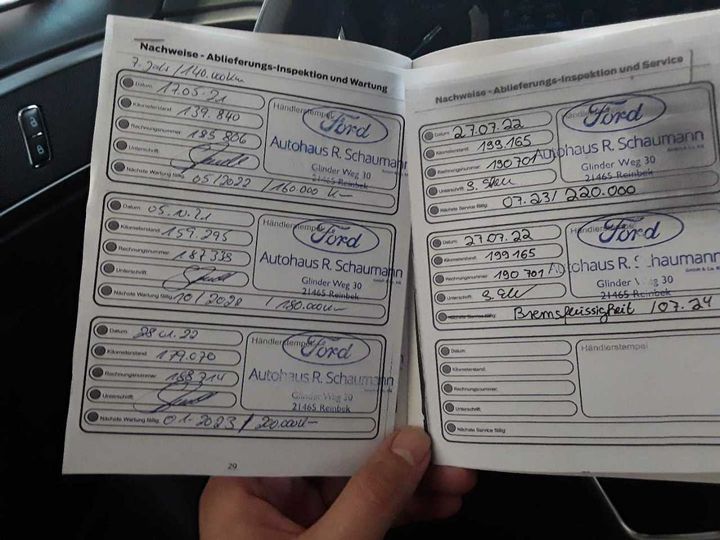 Nachweise - Ablieferungs-Inspektion und Wartung
7. Jahr / 140.000 km
Datum 17.05.21
Kilometerstand 139.840
Rechnungsnummer 185 806
Unterschrift
Nächste Wartung fällig 05/2022 / 160.000
Händlerstempel
Ford
Autohaus R. Schaumann
GmbH & Co. KG
Glinder Weg 30
21465 Reinbek
Datum 05.10.21
Kilometerstand 159.295
Rechnungsnummer 187 338
Unterschrift
Nächste Wartung fällig / 180.000
Händlerstempel
Ford
Autohaus R. Schaumann
GmbH & Co. KG
Glinder Weg 30
21465 Reinbek
Datum 28.01.22
Kilometerstand 179.070
Rechnungsnummer 188 714
Unterschrift
Nächste Wartung fällig 01-2023 / 200.000
Händlerstempel
Ford
Autohaus R. Schaumann
Glinder Weg 30
21465 Reinbek
29
Nachweise - Ablieferungs-Inspektion und Service
Datum 27.07.22
Kilometerstand 199.165
Rechnungsnummer 190 701
Unterschrift
Nächste Service fällig 07.23 / 220.000
Ford
Autohaus R. Schaumann
GmbH & Co. KG
Glinder Weg 30
21465 Reinbek
Datum 27.07.22
Kilometerstand 199 165
Rechnungsnummer 190 701
Unterschrift
Nächste Service fällig Bremsflüssigkeit / 07.24
Ford
Autohaus R. Schaumann
GmbH & Co. KG
Glinder Weg 30
21465 Reinbek
Datum
Kilometerstand
Rechnungsnummer
Unterschrift
Nächste Service fällig
Händlerstempel